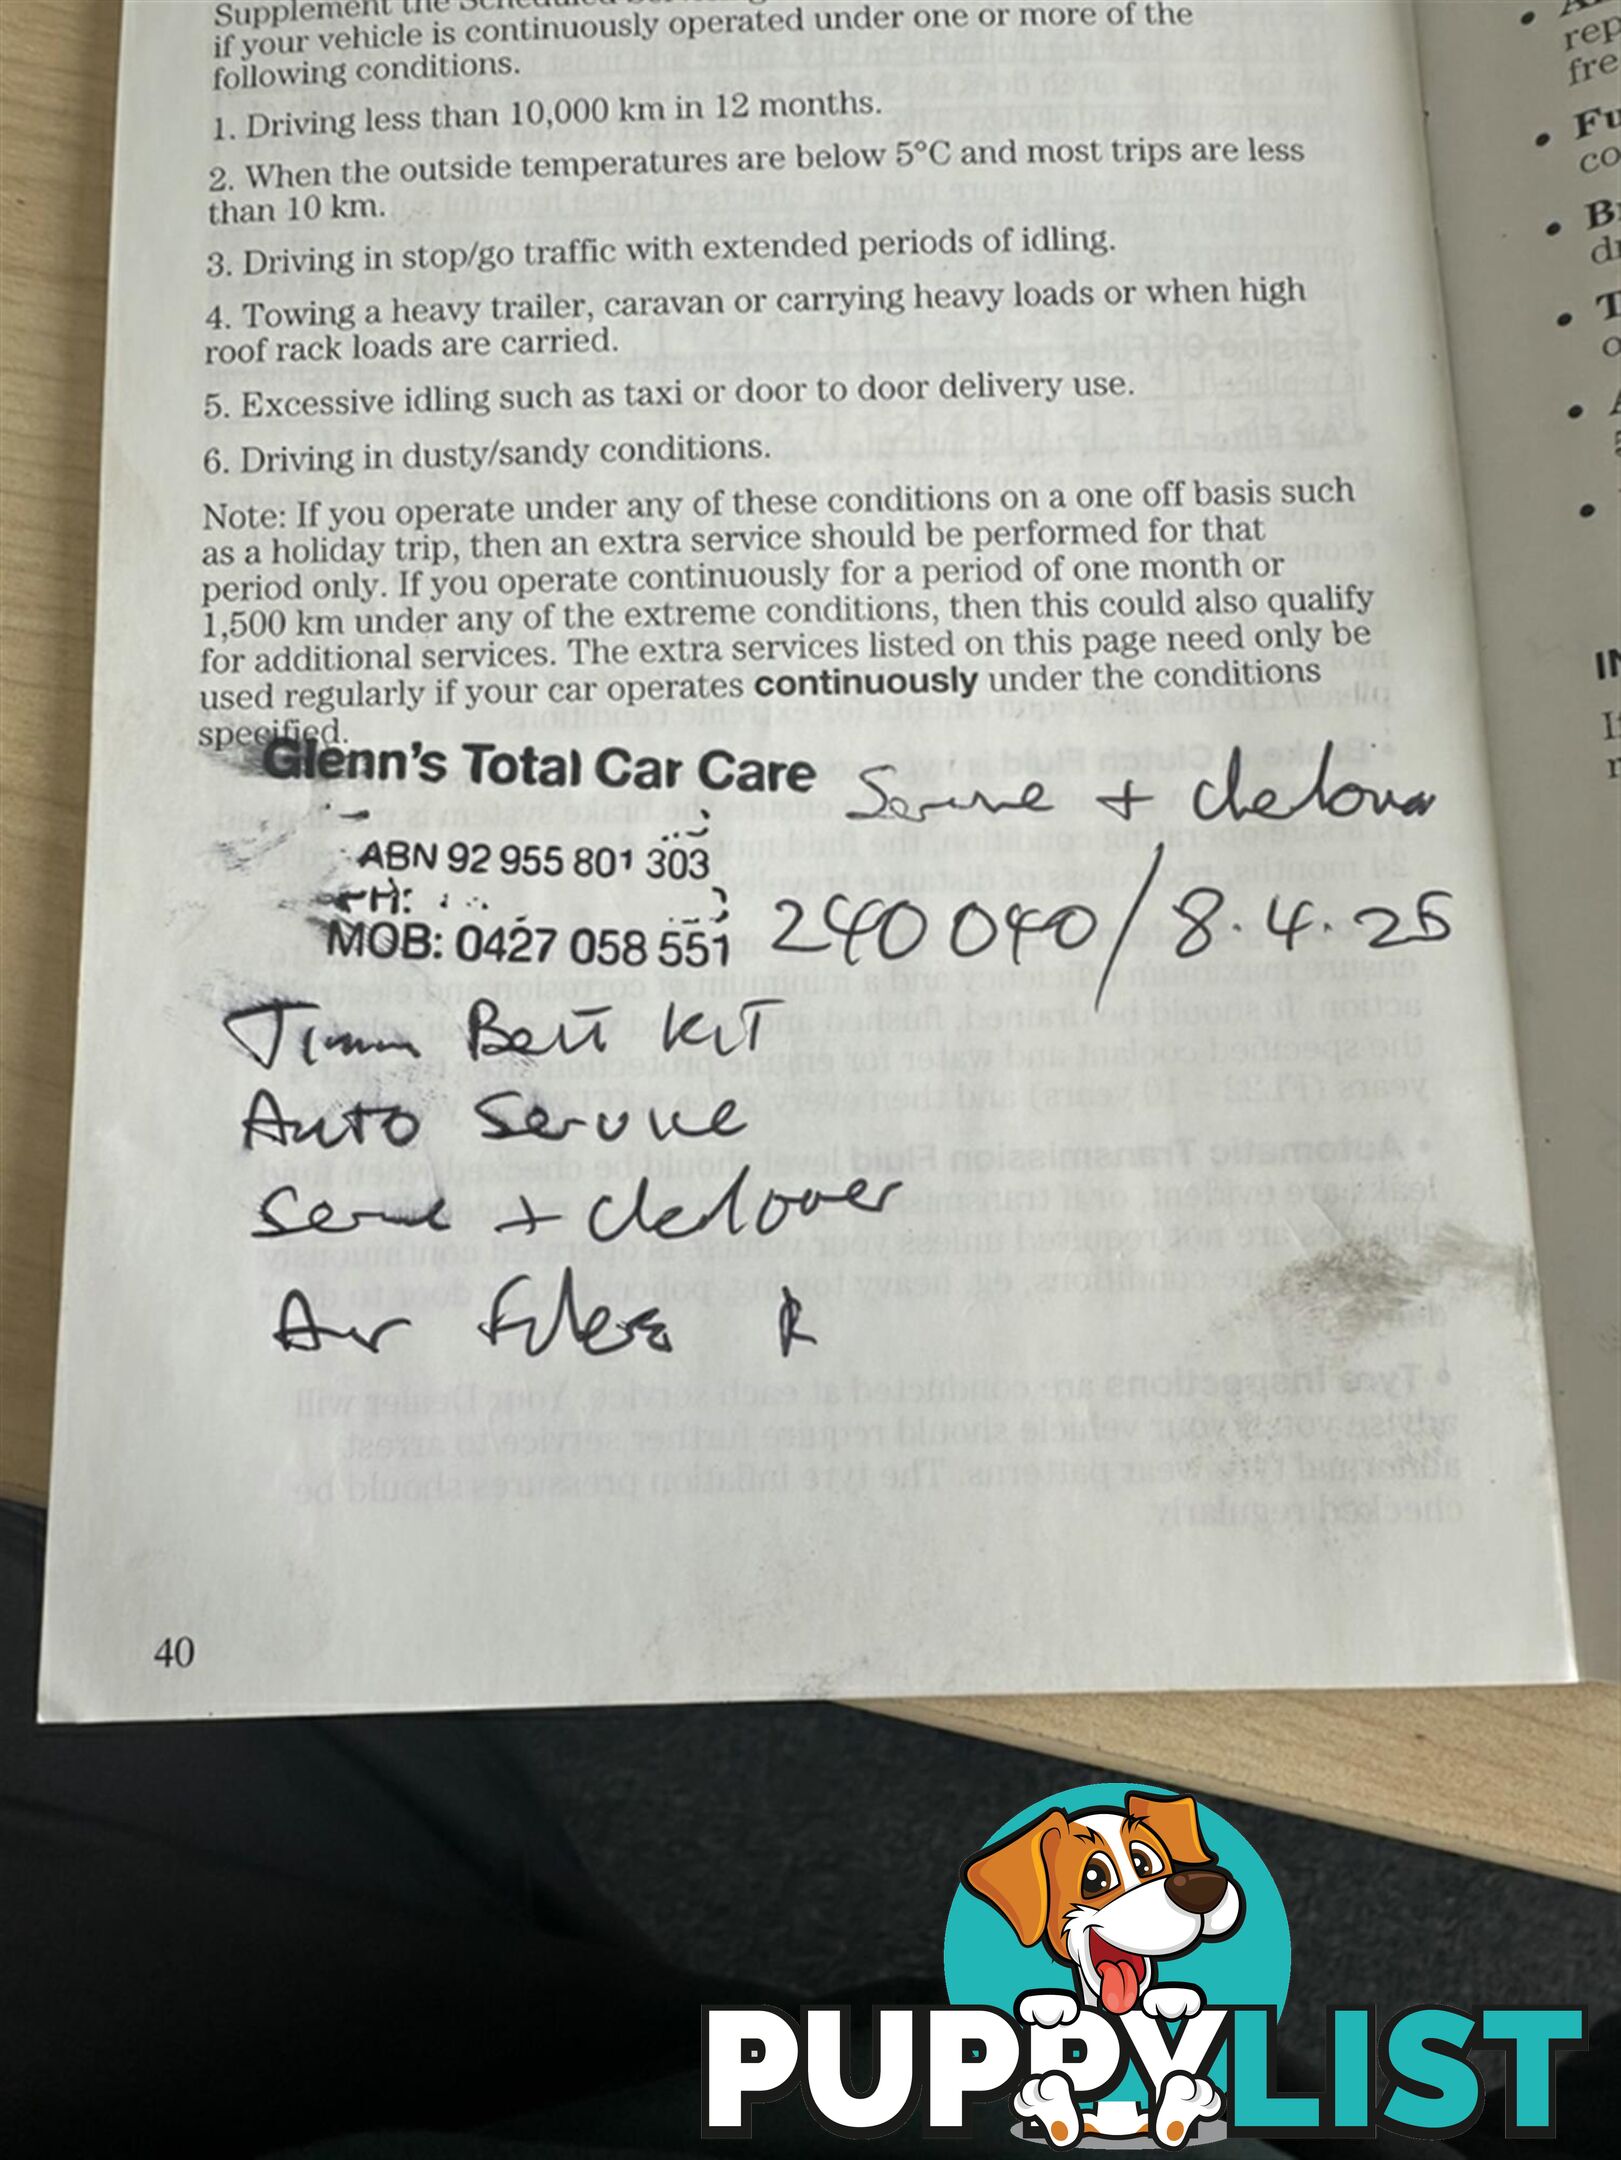 Supplement the Scheduled
if your vehicle is continuously operated under one or more of the
following conditions.
1. Driving less than 10,000 km in 12 months.
2. When the outside temperatures are below 5°C and most trips are less
than 10 km.
3. Driving in stop/go traffic with extended periods of idling.
4. Towing a heavy trailer, caravan or carrying heavy loads or when high
roof rack loads are carried.
5. Excessive idling such as taxi or door to door delivery use.
6. Driving in dusty/sandy conditions.
Note: If you operate under any of these conditions on a one off basis such
as a holiday trip, then an extra service should be performed for that
period only. If you operate continuously for a period of one month or
1,500 km under any of the extreme conditions, then this could also qualify
for additional services. The extra services listed on this page need only be
used regularly if your car operates continuously under the conditions
specified.
Glenn's Total Car Care
Service +
ABN 92 955 801 303
PH:
MOB: 0427 058 551
240 040 / 8.4.25
Belt Kit
Auto Service
Service +
Air Filter R
40
PUPPYLIST